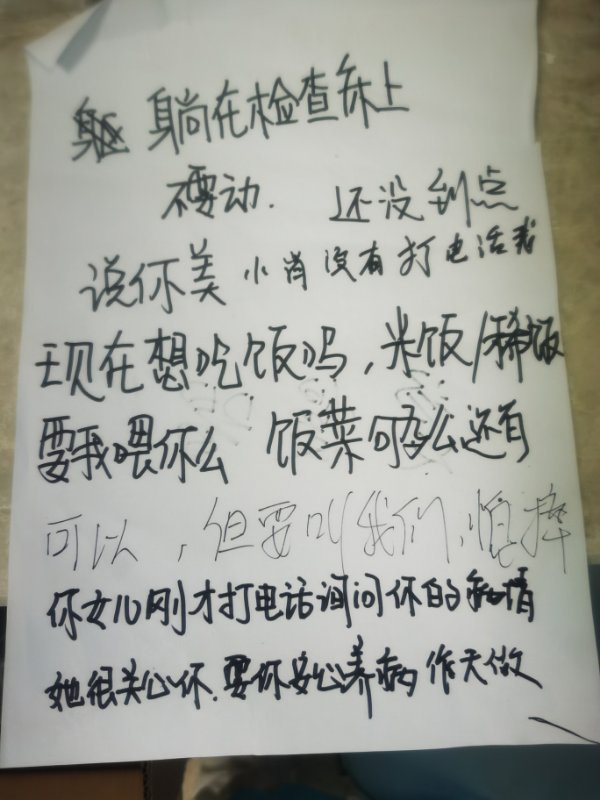 躺在检查床上
不要动. 还没到点
说你美 小肖没有打电话我
现在想吃饭吗,米饭/稀饭
要我喂你么 饭菜可么还有
可以,但要叫我们,怕摔
你女儿刚才打电话询问你的病情
她很关心你.要你安心养病 作天做